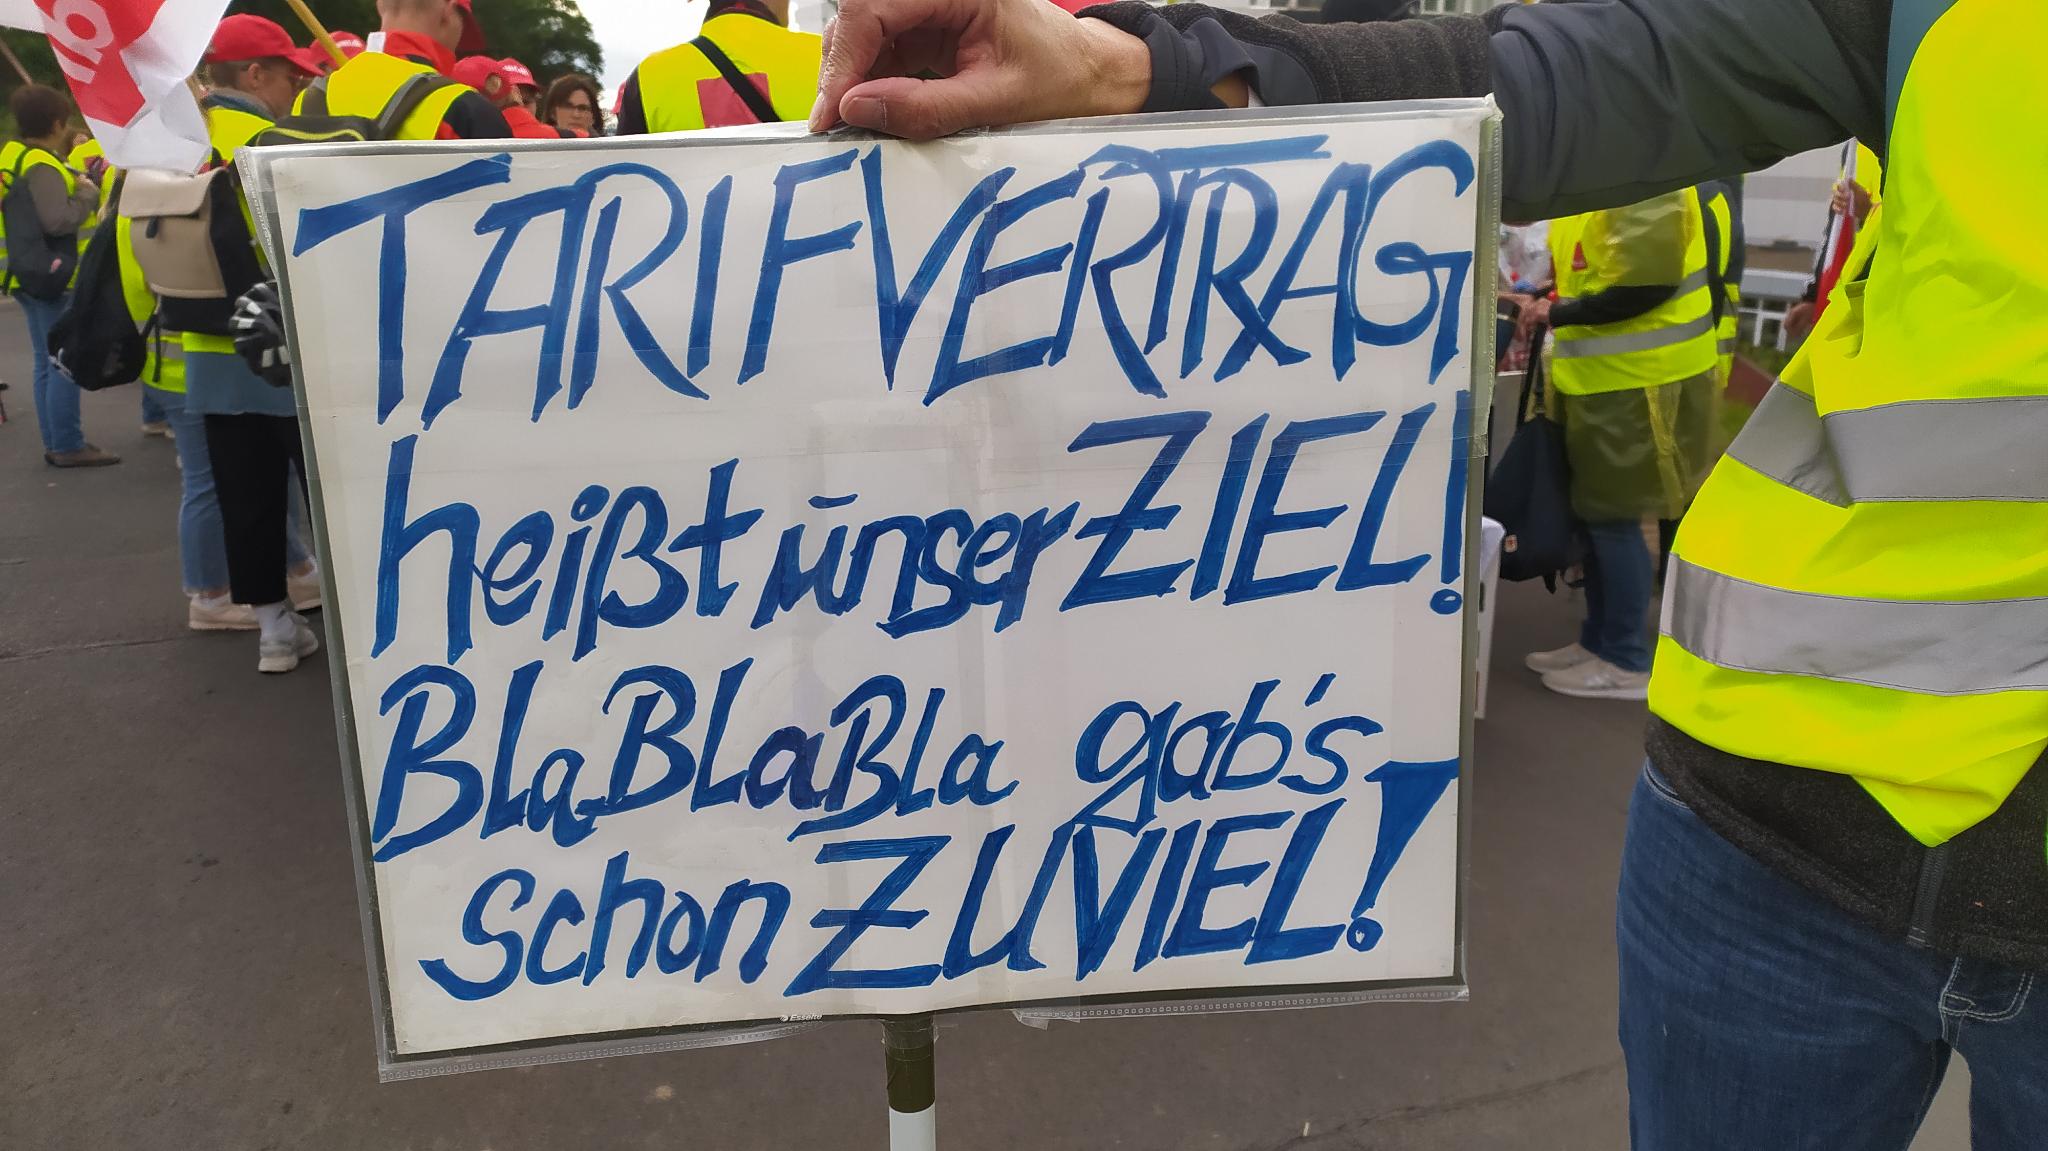 TARIFVERTRAG
heißt unser ZIEL!
BlaBLaBla gab's
schon ZUVIEL!
Esselte